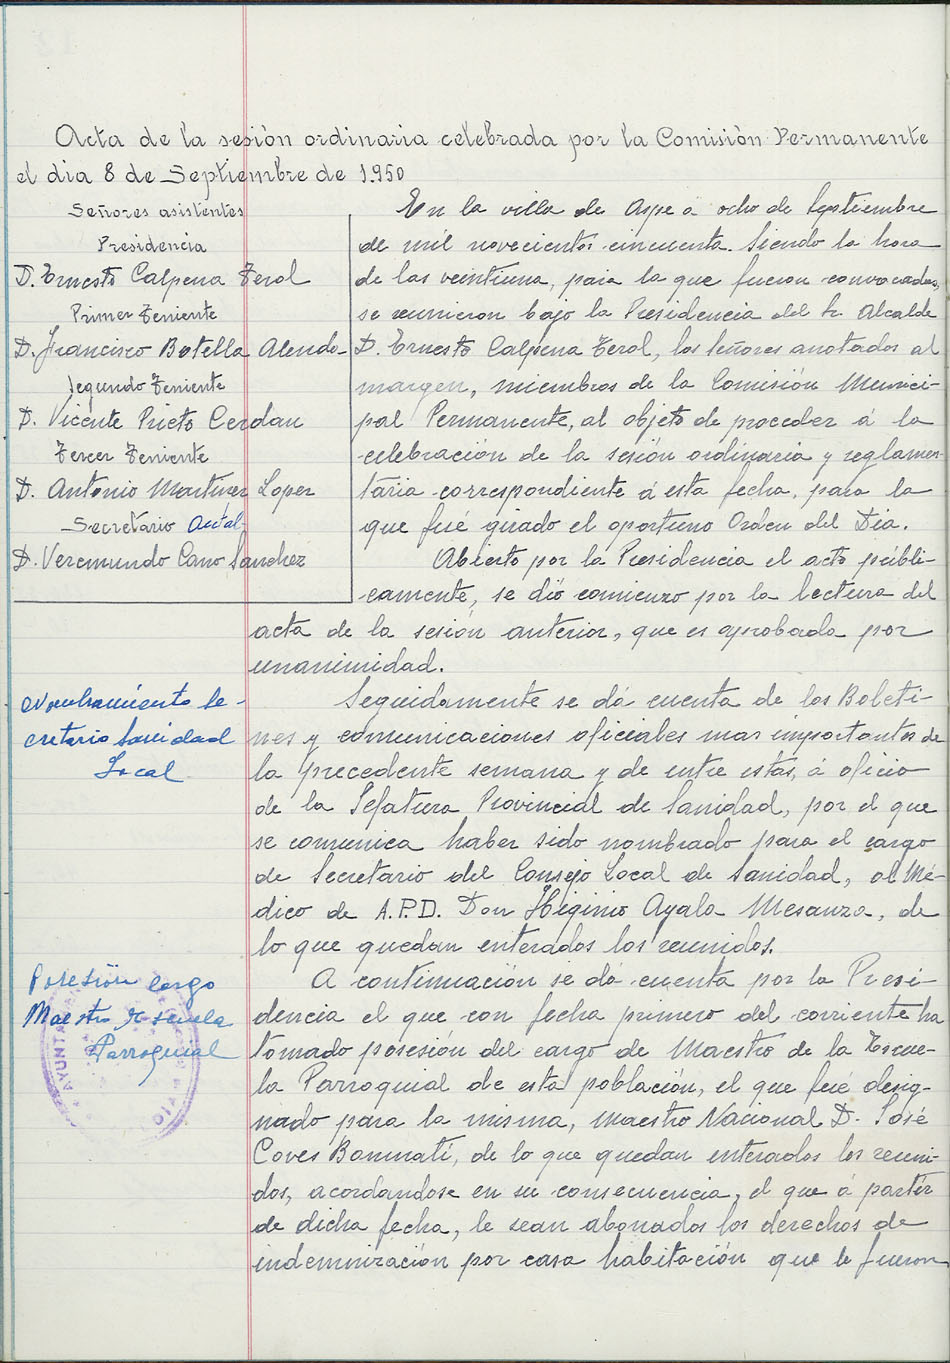 Acta de la sesión ordinaria celebrada por la Comisión Permanente
el dia 8 de Septiembre de 1.950
Señores asistentes
Presidencia
D. Ernesto Calpena Terol
Primer Teniente
D. Francisco Botella Alenda
Segundo Teniente
D. Vicente Prieto Cerdan
Tercer Teniente
D. Antonio Martinez Lopez
Secretario Actal.
D. Veremundo Cano Sanchez
En la villa de Aspe a ocho de Septiembre
de mil novecientos cincuenta. Siendo la hora
de las veintiuna, para la que fueron convocados,
se reunieron bajo la Presidencia del Sr. Alcalde
D. Ernesto Calpena Terol, los Señores anotados al
margen, miembros de la Comisión Munici-
pal Permanente, al objeto de proceder á la
celebración de la sesión ordinaria y reglamen-
tária correspondiente á esta fecha, para la
que fué girado el oportuno Orden del Dia.
Abierto por la Presidencia el acto públi-
camente, se dió comienzo por la lectura del
acta de la sesión anterior, que es aprobada por
unanimidad.
Nombramiento Se-
cretario Sanidad
Local
Seguidamente se dá cuenta de los Boleti-
nes y comunicaciones oficiales mas importantes de
la precedente semana y de entre estas, á oficio
de la Jefatura Provincial de Sanidad, por el que
se comunica haber sido nombrado para el cargo
de Secretario del Consejo Local de Sanidad, al Mé-
dico de A.P.D. Don Higinio Ayala Mesanza, de
lo que quedan enterados los reunidos.
Posesión cargo
Maestro Escuela
Parroquial
AYUNTA
A continuación se dá cuenta por la Presi-
dencia el que con fecha primero del corriente ha
tomado posesión del cargo de Maestro de la Escue-
la Parroquial de esta población, el que fué desig-
nado para la misma, Maestro Nacional D. José
Coves Bonmatí, de lo que quedan enterados los reuni-
dos, acordandose en su consecuencia, el que á partir
de dicha fecha, le sean abonados los derechos de
indemnización por casa habitación que le fueron